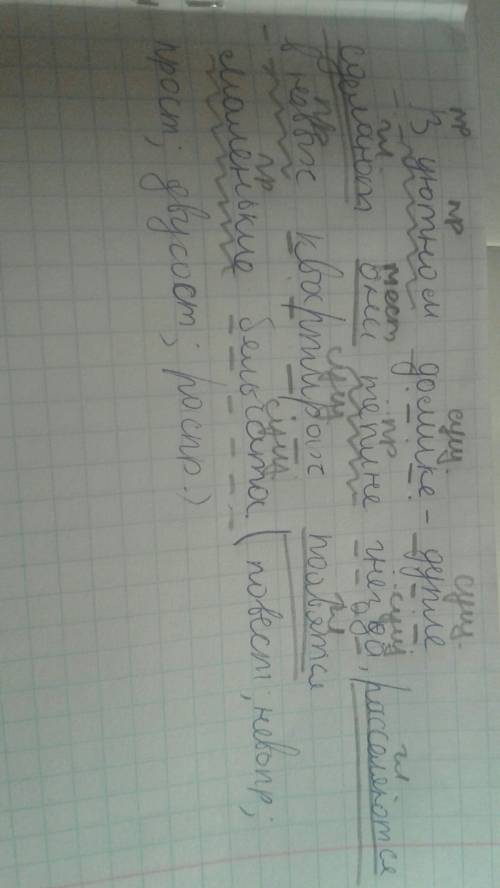 пр пр сущ. сущ.
В уютном домике - дупле
гл мест пр сущ гл
сделают они тёплые гнёзда, расселяются
пр сущ гл
в новых квартирах появятся
пр сущ
маленькие бельчата. (повест; невопр;
прост; двусост; распр.)